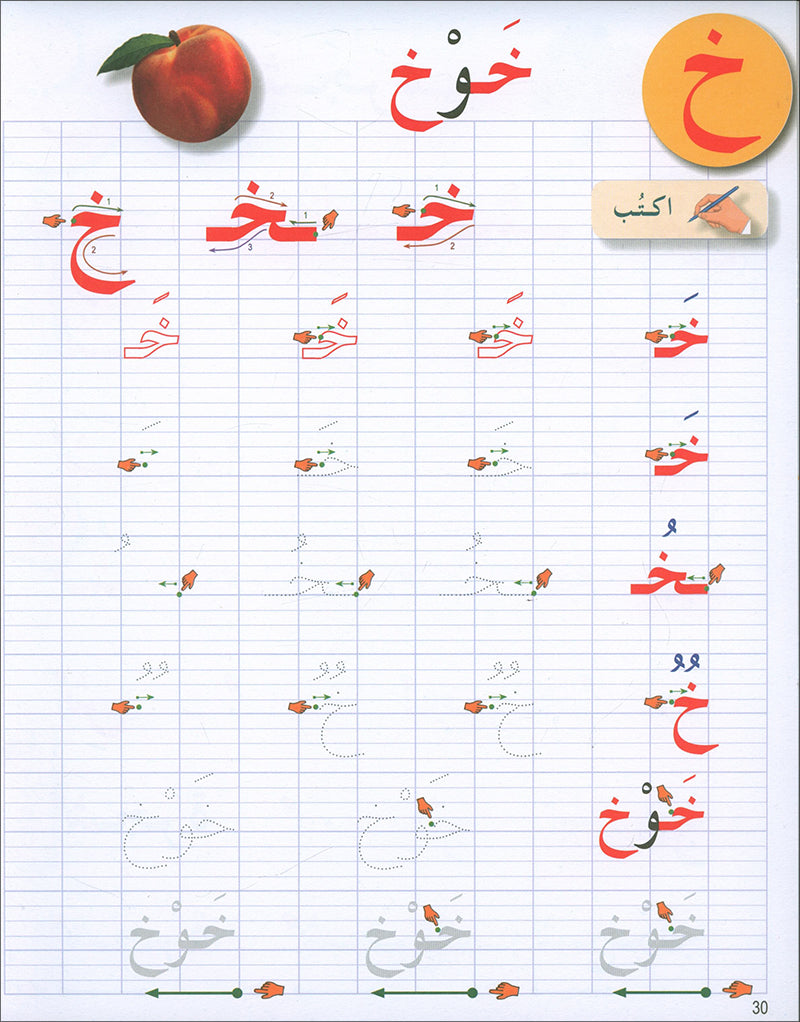 خ خَوْخ
اكتُب
خـ 1 2 ـخـ 1 2 3 خ 1 2
خَـ خَـ خَـ خَـ
خَـ خَـ خَـ َ
ـخُـ ـخُـ ـخُـ ُ
خٌ خٌ خٌ ٌ
خَوْخ خَوْخ خَوْخ
خَوْخ خَوْخ خَوْخ
30